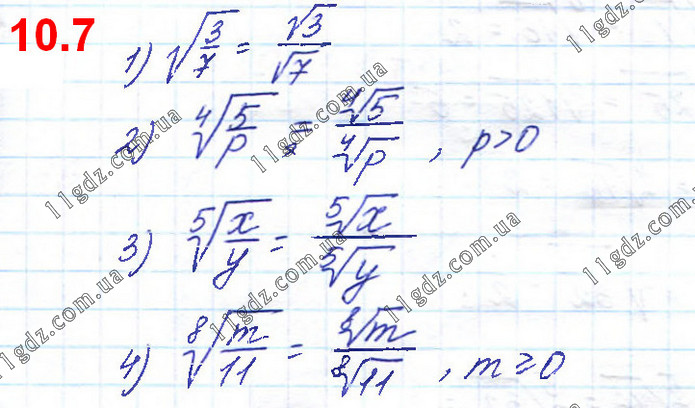 10.7
1) √(3/7) = √3/√7
2) ⁴√(5/p) = ⁴√5/⁴√p , p>0
3) ⁵√(x/y) = ⁵√x/⁵√y
4) ⁸√(m/11) = ⁸√m/⁸√11 , m≥0
11gdz.com.ua
11gdz.com.ua
11gdz.com.ua
11gdz.com.ua
11gdz.com.ua
11gdz.com.ua
11gdz.com.ua